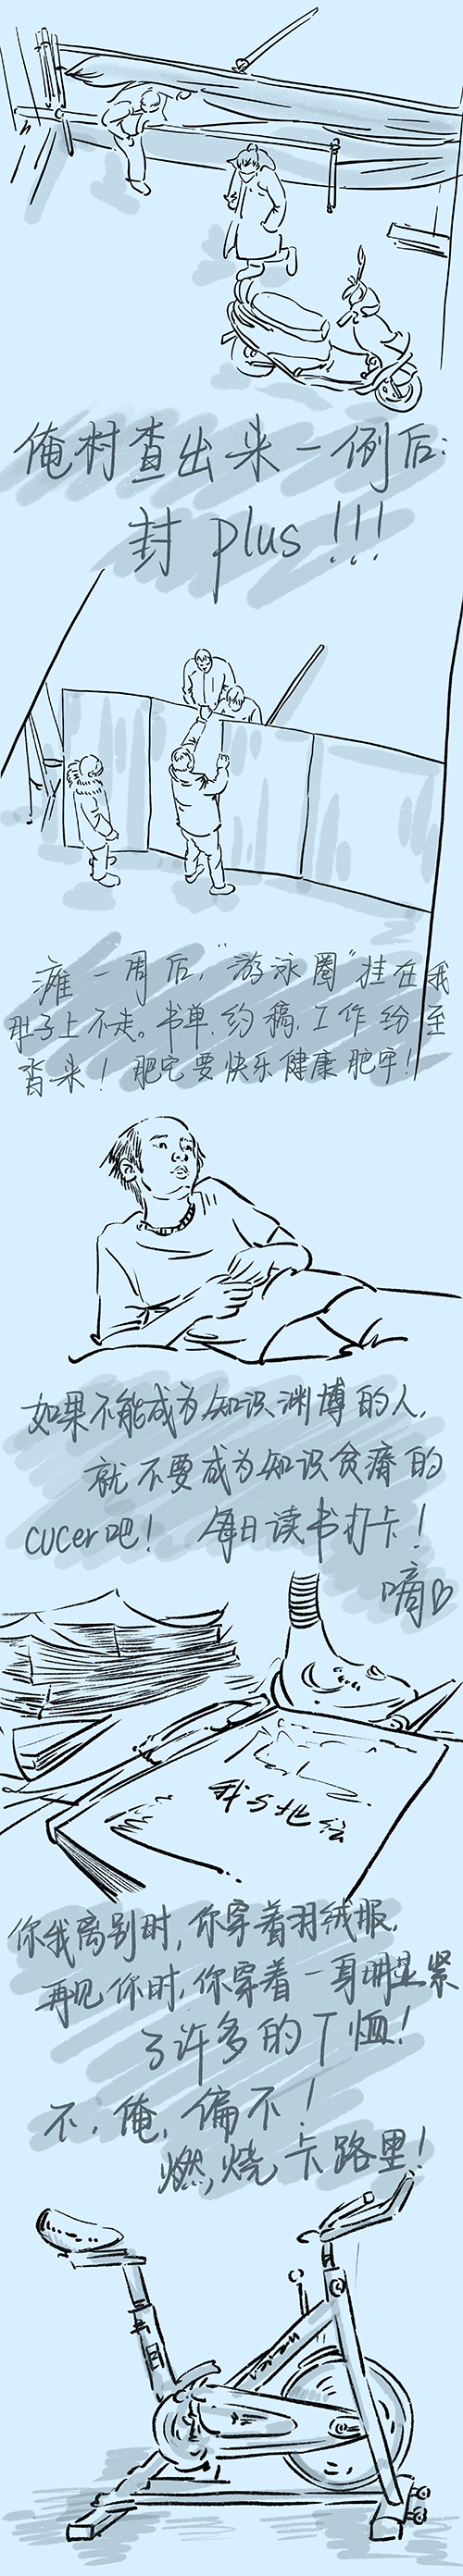 俺村查出来一例后:
封 plus!!!
瘫一周后,“游泳圈”挂在我
肚子上不走。书单、约稿、工作纷至
沓来！肥宅要快乐健康肥宅！
如果不能成为知识渊博的人,
就不要成为知识贫瘠的
CUCer吧！ 每日读书打卡！
嘀
我与地坛
你我离别时,你穿着羽绒服,
再见你时,你穿着一身明显紧
了许多的T恤！
不,俺,偏不！
燃,烧卡路里！